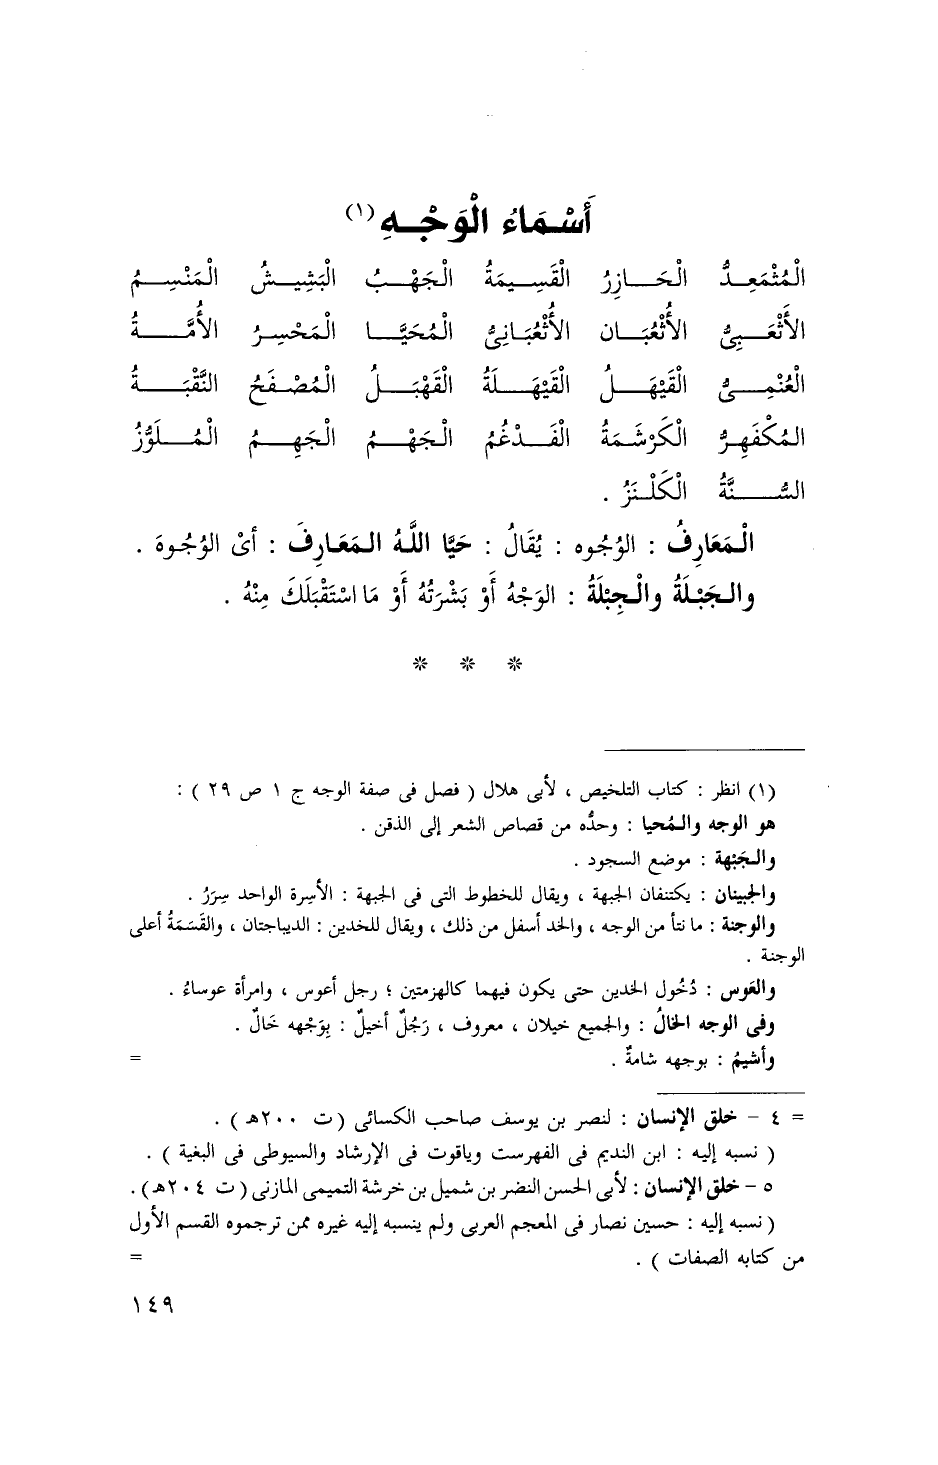 أَسْمَاءُ الْوَجْهِ (١)
الْمُثْمَعِدُّ الْحَازِرُ الْقَسِيمَةُ الْجَهْبُ الْبَشِيشُ الْمَنْسِمُ
الأَثْعَبِيُّ الأُثْعُبَان الأُثْعُبَانِيُّ الْمُحَيَّا الْمَحْسِرُ الأُمَّةُ
الْعُنْمِيُّ الْقَيْهَلُ الْقَيْهَلَةُ الْقَهْبَلُ الْمُصْفَحُ النُّقْبَةُ
المُكْفَهِرُّ الْكَرْشَمَةُ الْفَدْغُمُ الْجَهْمُ الْجَهِمُ الْمُلَوَّزُ
السُّنَّةُ الْكَلْنَزُ .
الْمَعَارِفُ : الوُجُوه : يُقَالُ : حَيَّا اللَّهُ المَعَارِفَ : أىْ الوُجُوهَ .
والجَبْلَةُ والْجِبْلَةُ : الوَجْهُ أَوْ بَشْرَتُهُ أَوْ مَا اسْتَقْبَلَكَ مِنْهُ .
* * *
(١) انظر : كتاب التلخيص ، لأبى هلال ( فصل فى صفة الوجه ج ١ ص ٢٩ ) :
هو الوجه والمُحيا : وحدُّه من قصاص الشعر إلى الذقن .
والجَبْهة : موضع السجود .
والجبينان : يكتنفان الجبهة ، ويقال للخطوط التى فى الجبهة : الأسِرة الواحد سِرَرُ .
والوجنة : ما نتأ من الوجه ، والخد أسفل من ذلك ، ويقال للخدين : الديباجتان ، والقَسَمَةُ أعلى
الوجنة .
والعَوس : دُخُول الخدين حتى يكون فيهما كالهزمتين ؛ رجل أعوس ، وامرأة عوساءُ .
وفى الوجه الخالُ : والجميع خيلان ، معروف ، رَجُلٌ أخيلٌ : بِوَجْهه خَالٌ .
وأشيمُ : بوجهه شامةٌ . =
= ٤ - خلق الإنسان : لنصر بن يوسف صاحب الكسائى (ت ٢٠٠هـ ) .
( نسبه إليه : ابن النديم فى الفهرست وياقوت فى الإرشاد والسيوطى فى البغية ) .
٥ - خلق الإنسان : لأبى الحسن النضر بن شميل بن خرشة التميمى المازنى ( ت ٢٠٤هـ) .
( نسبه إليه : حسين نصار فى المعجم العربى ولم ينسبه إليه غيره ممن ترجموه القسم الأول
من كتابه الصفات ) . =
١٤٩